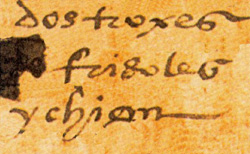 dos troxes
frisoles
y chian